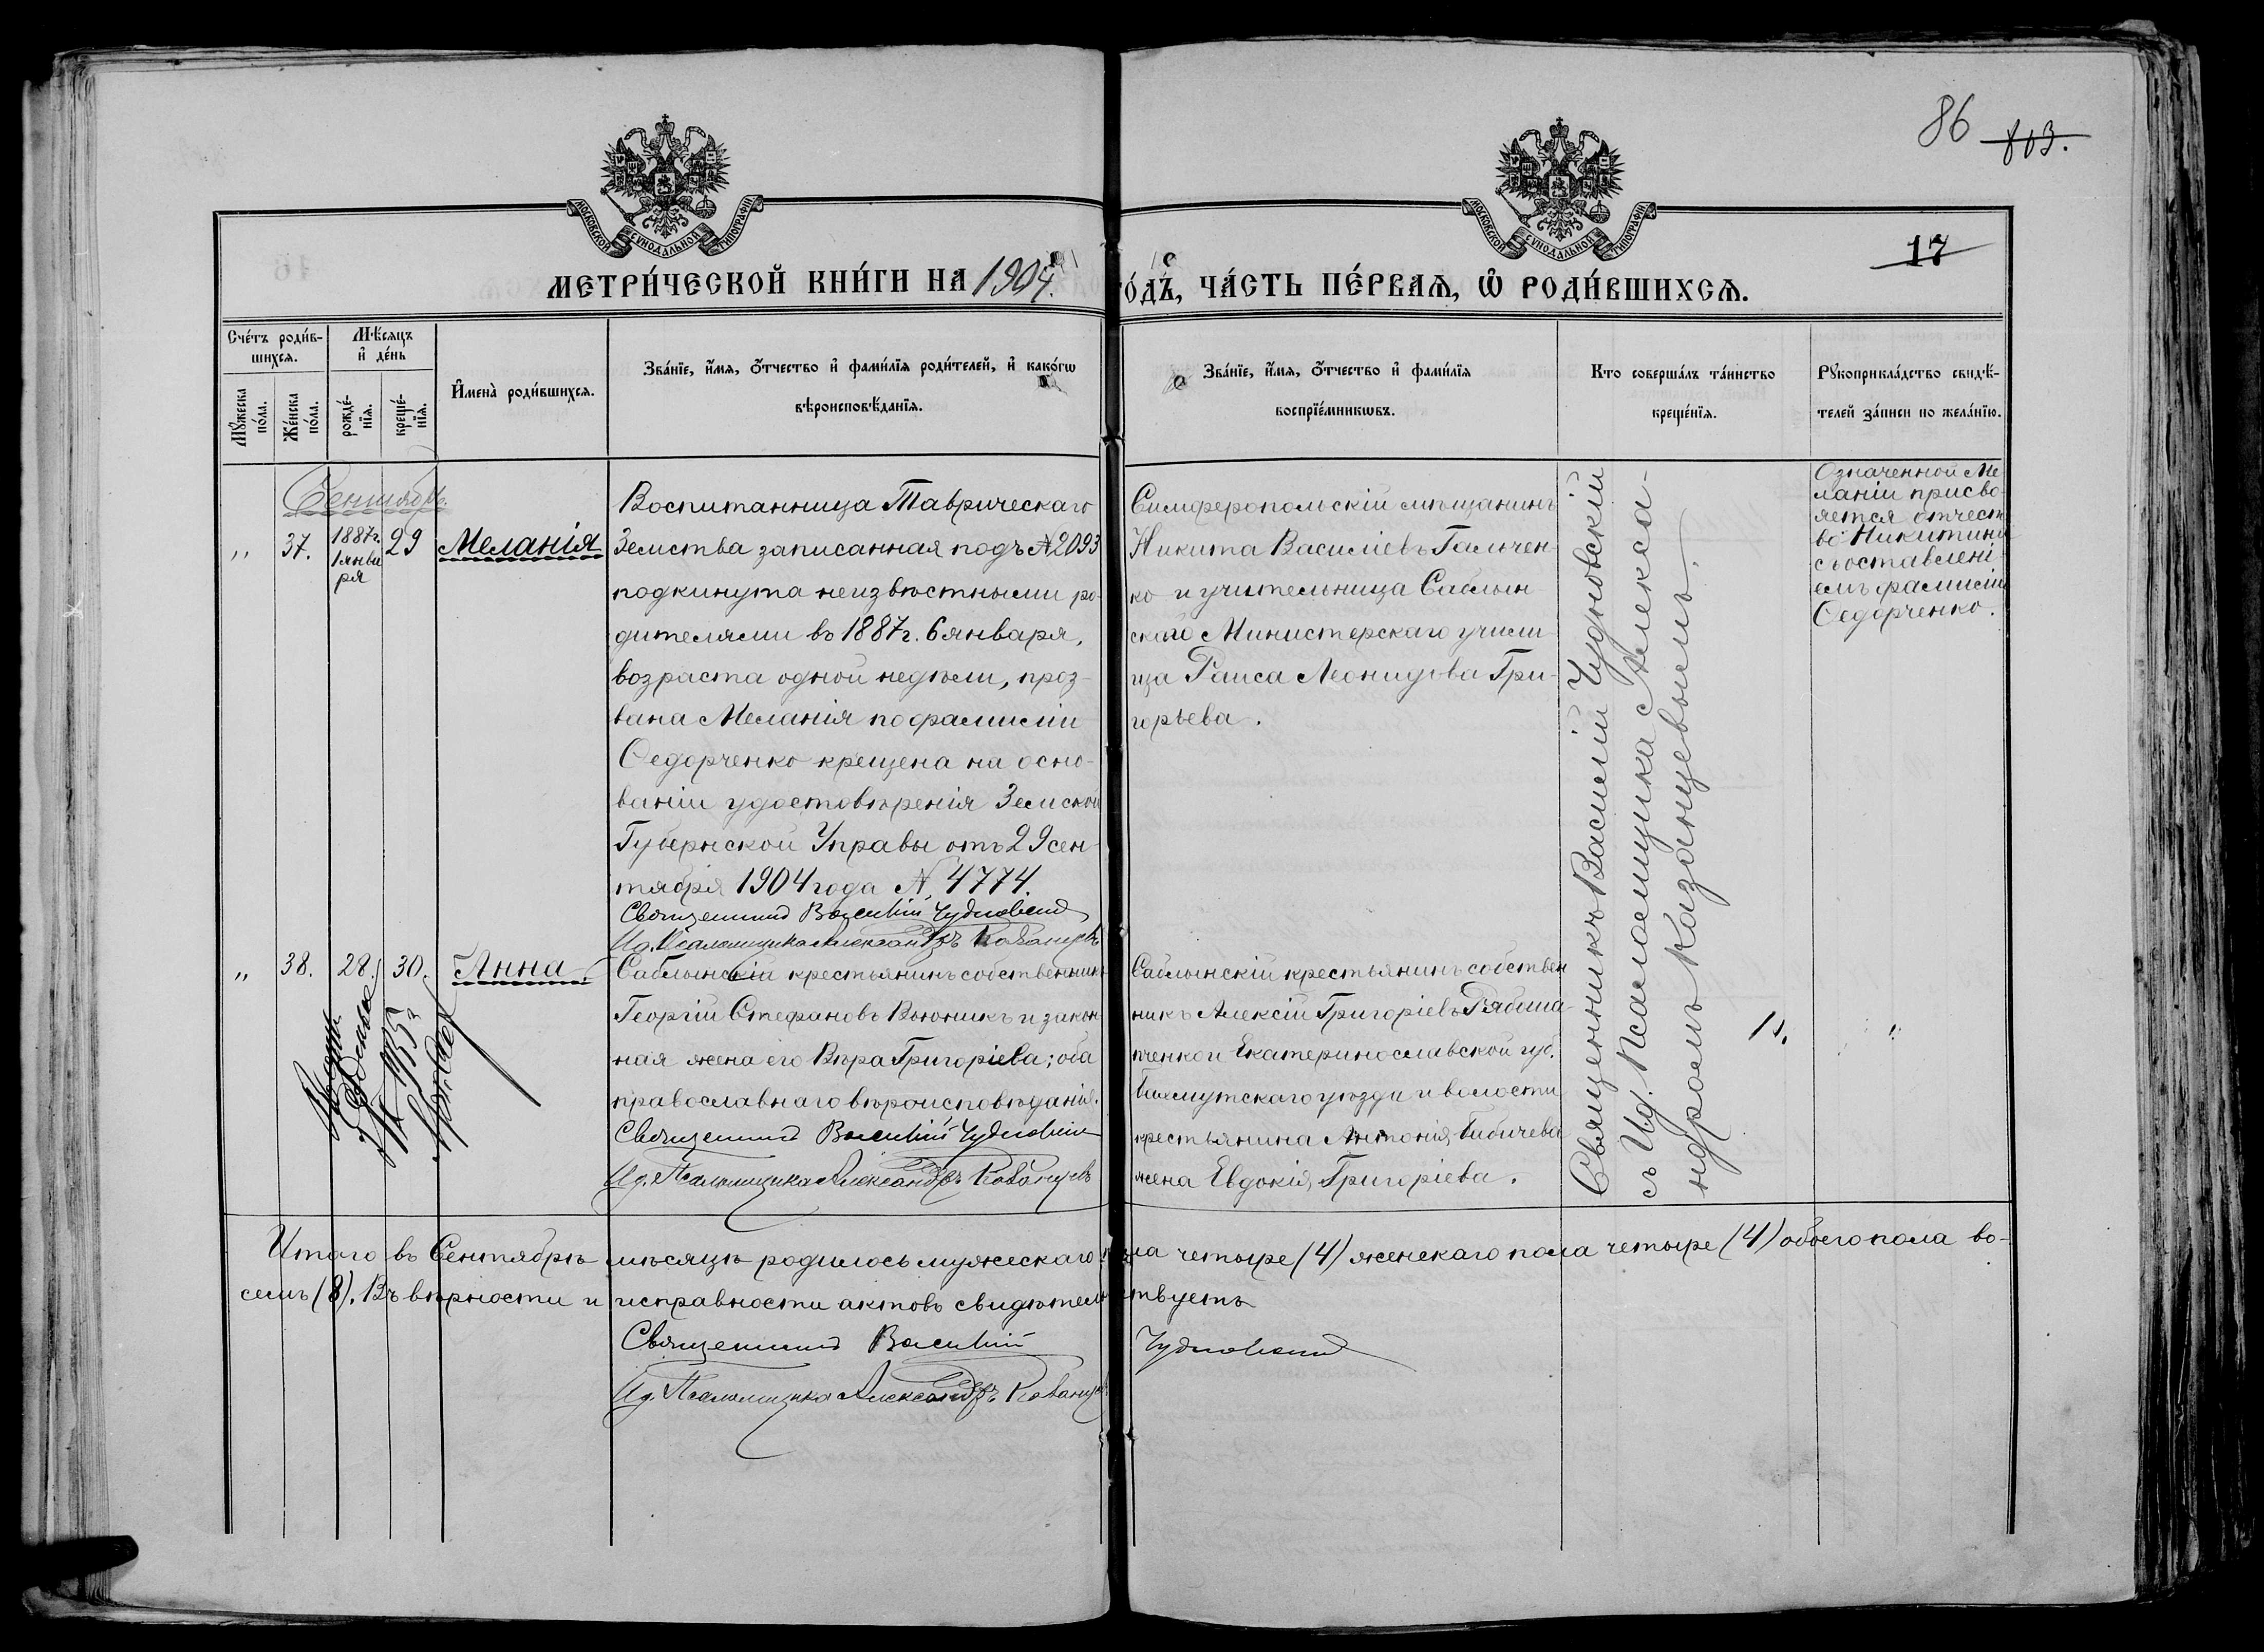 86
803.
МОСКОВСКОЙ СУНОДАЛЬНОЙ ТИПОГРАФІИ
МОСКОВСКОЙ СУНОДАЛЬНОЙ ТИПОГРАФІИ
17
МЕТРИ́ЧЕСКОЙ КНИ́ГИ НА 1904
О́ДЪ, ЧА́СТЬ ПЕ́РВАѦ, Ѡ҆ РОДИ́ВШИХСѦ.
Сче́тъ роди́в-
шихсѧ.
Мꙋ́жеска
по́ла.
Же́нска
по́ла.
Мѣ́сѧцъ
и҆ де́нь
рожде́-
нїѧ.
креще́-
нїѧ.
И҆мена̀ роди́вшихсѧ.
Зва́нїе, и҆́мѧ, ѻ҆́тчество и҆ фами́лїѧ роди́телей, и҆ како́гѡ
вѣроисповѣ́данїѧ.
Зва́нїе, и҆́мѧ, ѻ҆́тчество и҆ фами́лїѧ
воспрїе́мникѡвъ.
Кто соверша́лъ та́инство
креще́нїѧ.
Рꙋкоприкла́дство свидѣ́-
телей за́писи по жела́нїю.
Сентябрь.
„
37.
1887г.
1 янва
ря
29
Меланія
Воспитанница Таврическаго
Земства записанная подъ № 2093
подкинута неизвѣстными ро-
дителями въ 1887 г. 6 января,
возраста одной недѣли, проз-
вана Меланія по фамиліи
Ѳедорченко крещена на осно-
ваніи удостовѣренія Земской
Губернской Управы отъ 29 сен-
тября 1904 года № 4774.
Священникъ Василій Чудновскій
Ид. Псаломщика Александръ Казанцевъ
Симферопольскій мѣщанинъ
Никита Василіевъ Гальчен-
ко и учительница Саблын-
скаго Министерскаго учили-
ща Раиса Леонидова Гри-
горьева.
Священникъ Василій Чудновскій
съ Ид. Псаломщика Алекса-
ндромъ Казанцевымъ.
Означенной Ме-
ланіи присво-
яется отчест-
во Никитина
съ оставлені-
емъ фамиліи
Ѳедорченко.
„
38.
28.
30.
Анна
Саблынскій крестьянинъ собственникъ
Георгій Стефановъ Вьюникъ и закон-
ная жена его Вѣра Григоріева; оба
православнаго вѣроисповѣданія.
Священникъ Василій Чудновскій
Ид. Псаломщика Александръ Казанцевъ
Саблынскій крестьянинъ собствен-
никъ Алексій Григоріевъ Рябша-
пченко и Екатеринославской губ.
Бахмутскаго уѣзда и волости
крестьянина Антонія Бибичева
жена Евдокія Григоріева.
„
„
Итого въ Сентябрѣ мѣсяцѣ родилось мужескаго пола четыре (4) женскаго пола четыре (4) обоего пола во-
семь (8). Въ вѣрности и исправности актовъ свидѣтельствуетъ
Священникъ Василій Чудновскій
Ид. Псаломщика Александръ Казанцевъ